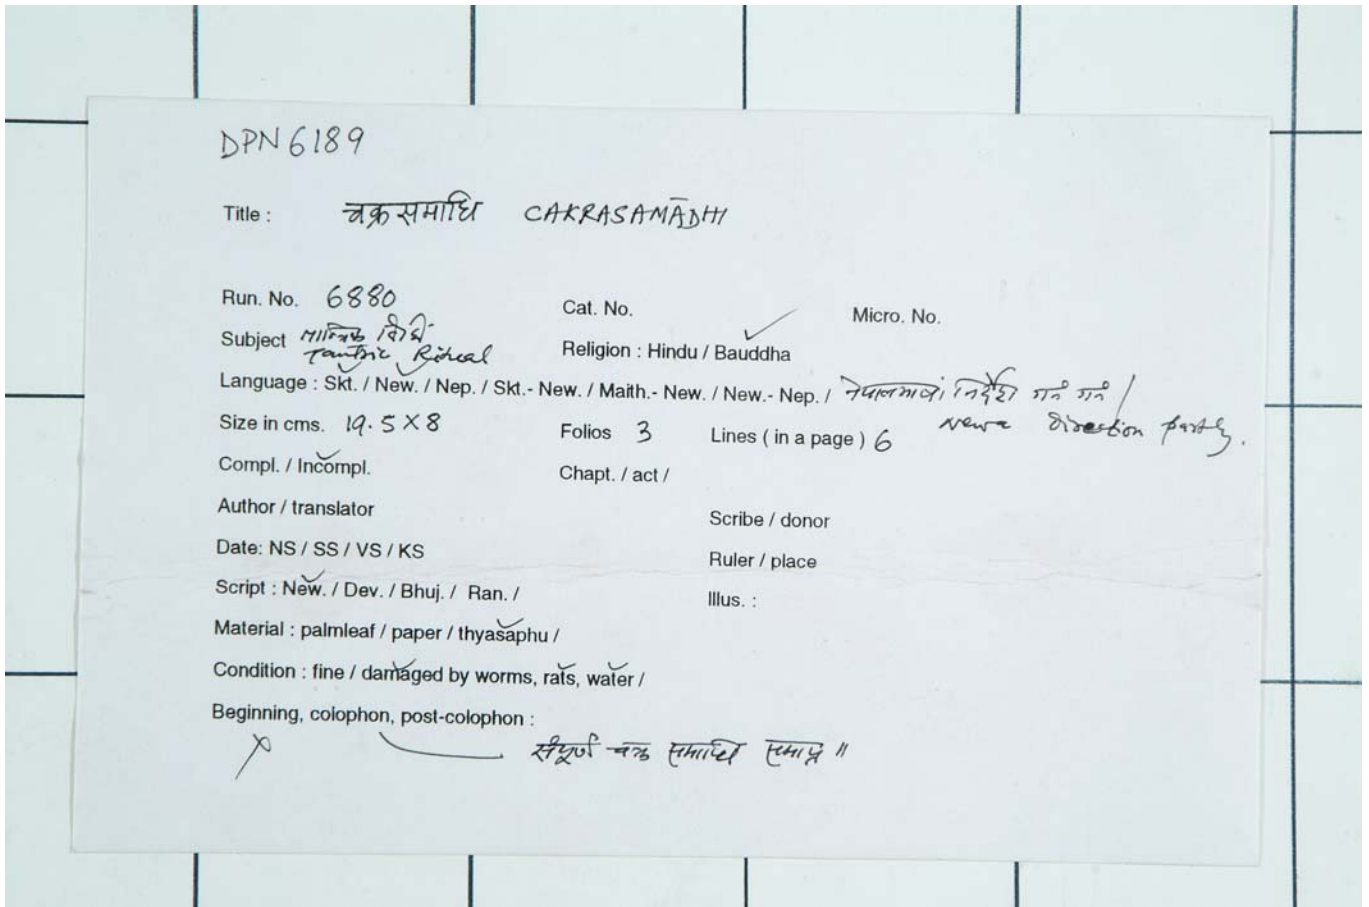 DPN 6189
Title : चक्रसमाधि CAKRASAMĀDHI
Run. No. 6880 Cat. No. Micro. No.
Subject तान्त्रिक विधि
Tantric Ritual Religion : Hindu / Bauddha
Language : Skt. / New. / Nep. / Skt.- New. / Maith.- New. / New.- Nep. / नेपालभाषां निर्देश गनं गनं /
Newa direction partly.
Size in cms. 19.5 X 8 Folios 3 Lines ( in a page ) 6
Compl. / Incompl. Chapt. / act /
Author / translator Scribe / donor
Date: NS / SS / VS / KS Ruler / place
Script : New. / Dev. / Bhuj. / Ran. / Illus. :
Material : palmleaf / paper / thyasaphu /
Condition : fine / damaged by worms, rats, water /
Beginning, colophon, post-colophon :
संपूर्ण चक्र समाधि समाप्त ॥